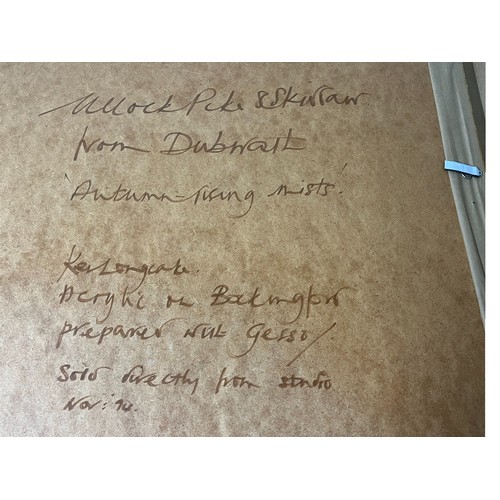 Ullock Pike & Skiddaw
from Dubwath
'Autumn - rising mists'.
Ken Longcake.
Acrylic on Bockingford
prepared with Gesso/.
Sold directly from studio
Nov: 90.